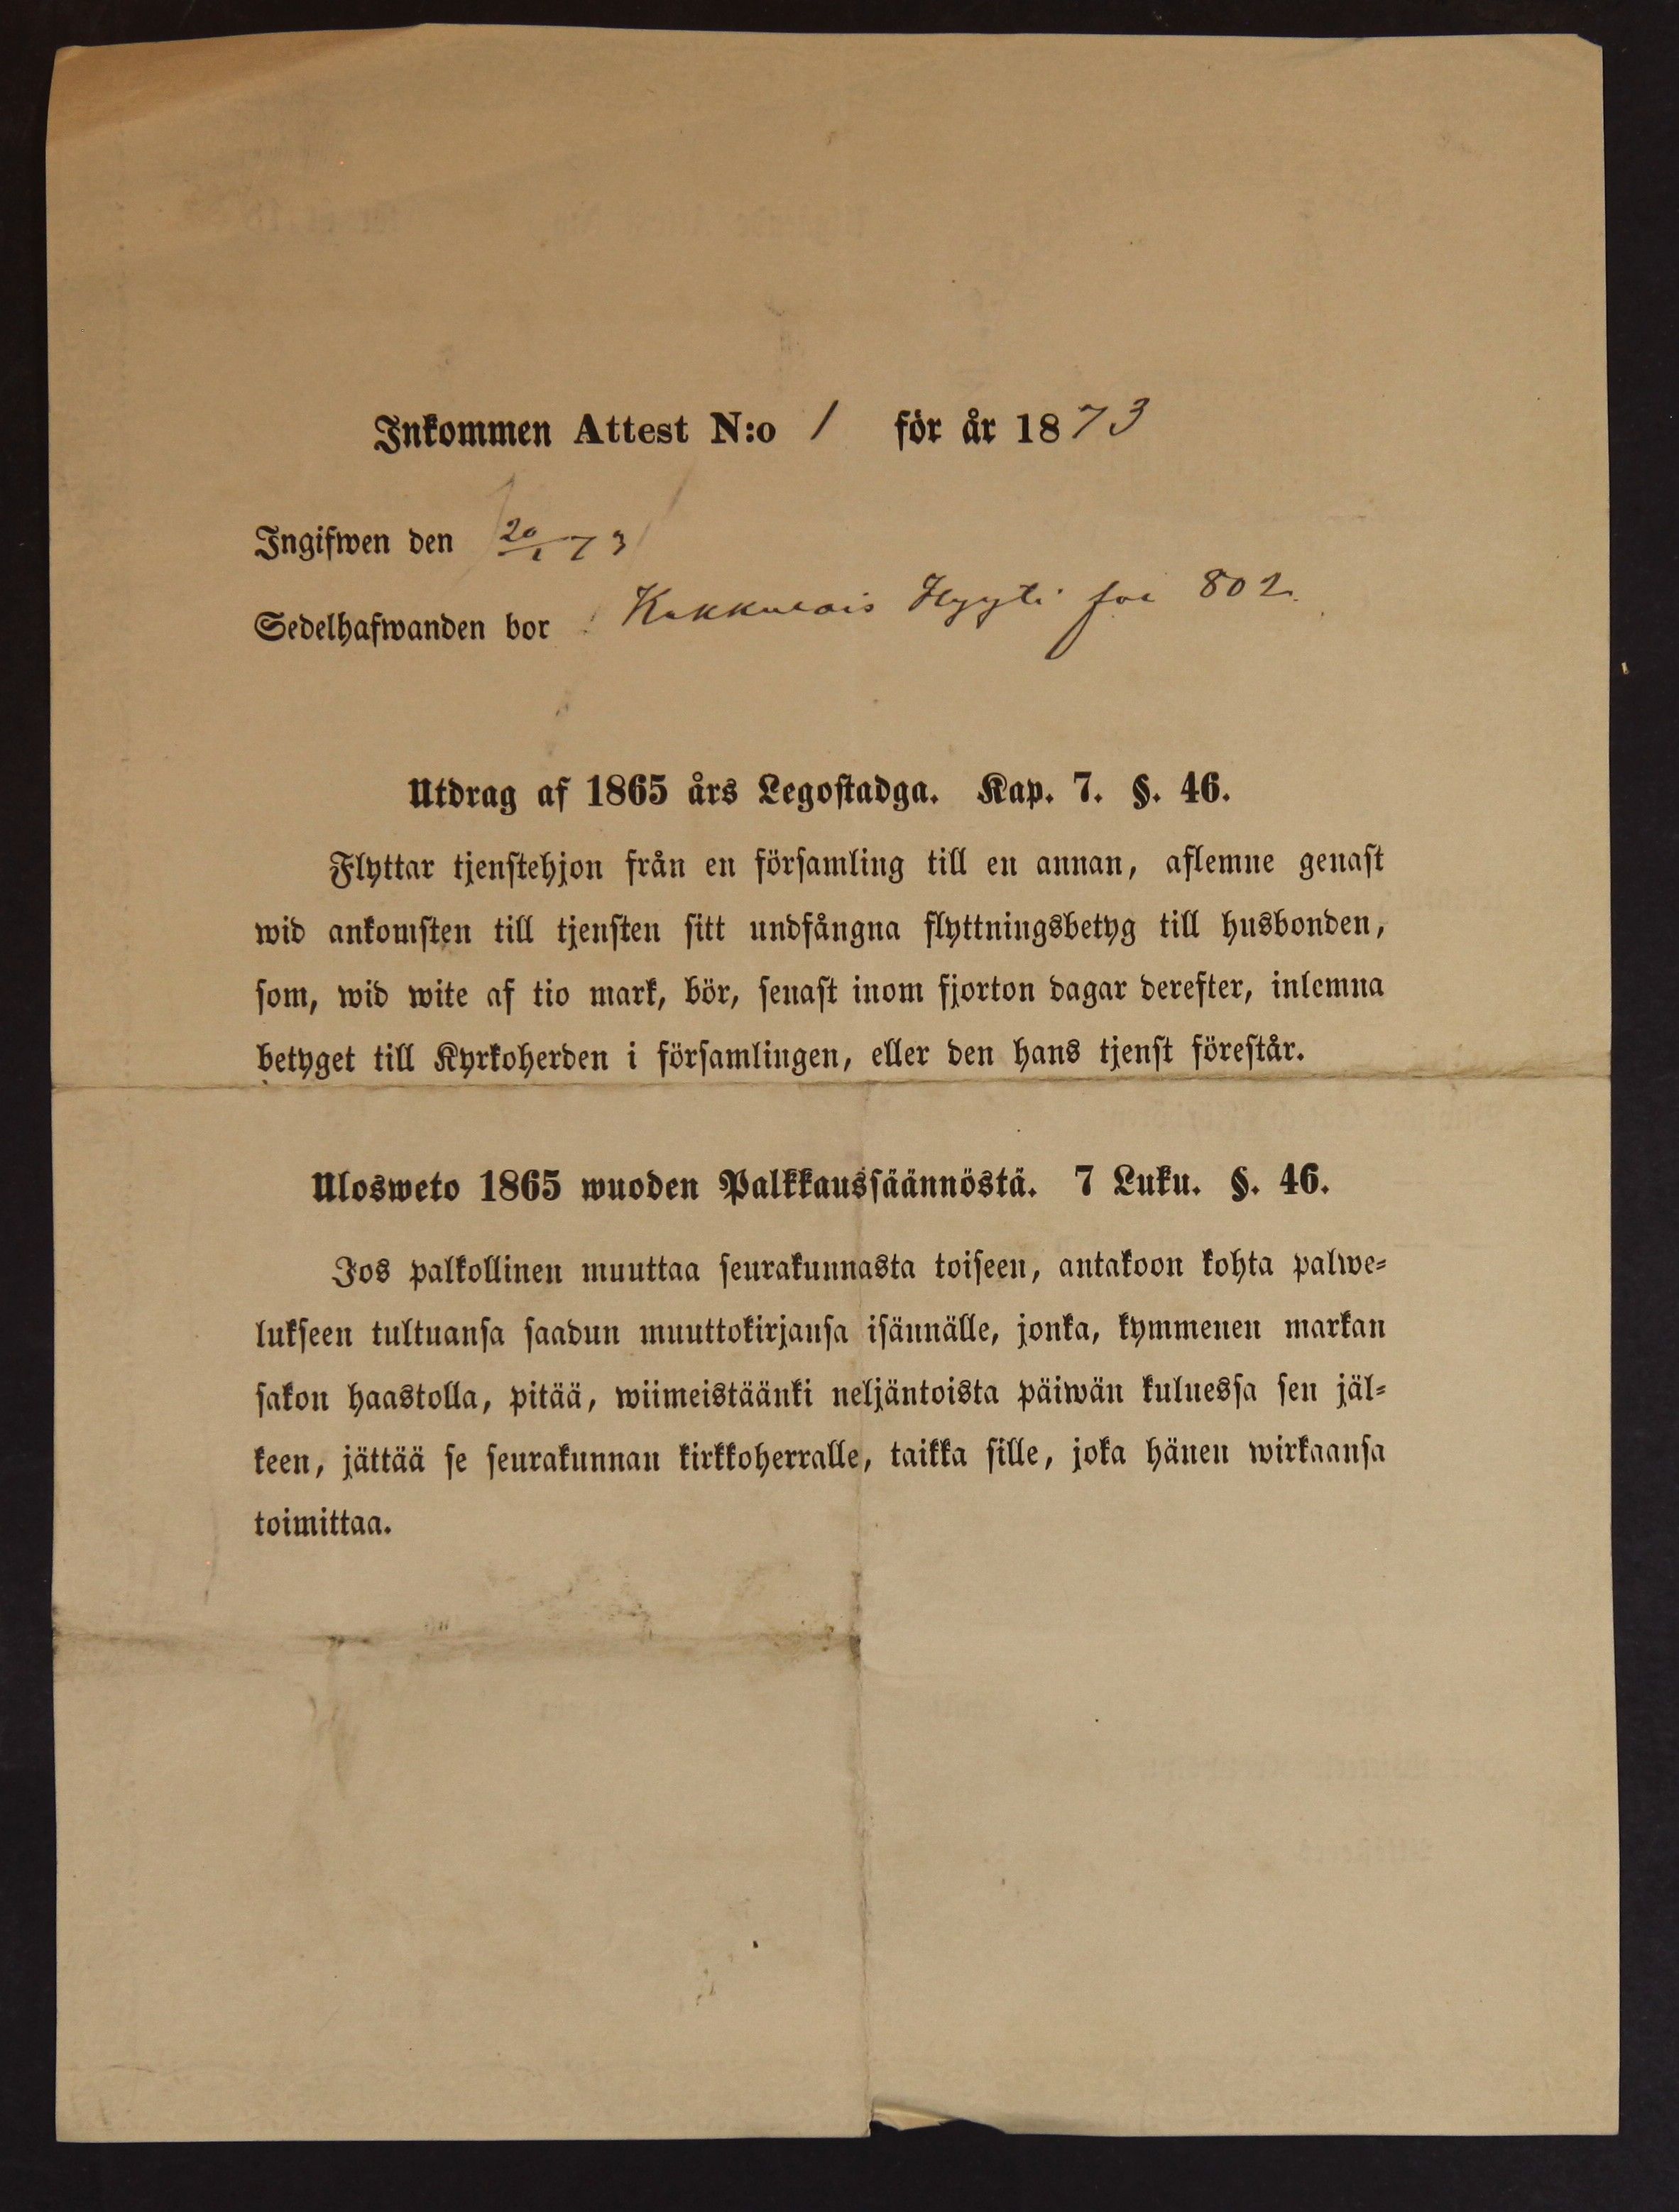 Inkommen Attest N:o 1 för år 1873
Ingifwen den 20/1 73
Sedelhafwanden bor Hyyti 802
Utdrag af 1865 års Legostadga. Kap. 7. §. 46.
Flyttar tjenstehjon från en församling till en annan, aflemne genast
wid ankomsten till tjensten sitt undfångna flyttningsbetyg till husbonden,
som, wid wite af tio mark, bör, senast inom fjorton dagar derefter, inlemna
betyget till Kyrkoherden i församlingen, eller den hans tjenst förestår.
Ulosweto 1865 wuoden Palkkaussäännöstä. 7 Luku. §. 46.
Jos palkollinen muuttaa seurakunnasta toiseen, antakoon kohta palwe-
lukseen tultuansa saadun muuttokirjansa isännälle, jonka, kymmenen markan
sakon haastolla, pitää, wiimeistäänki neljäntoista päiwän kuluessa sen jäl-
keen, jättää se seurakunnan kirkkoherralle, taikka sille, joka hänen wirkaansa
toimittaa.